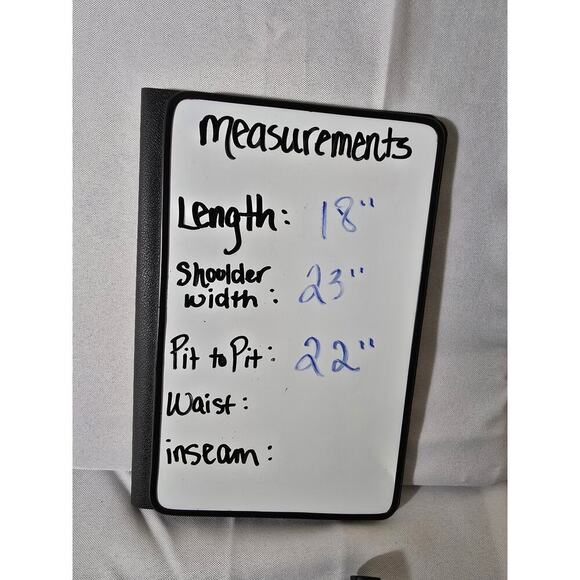 measurements
Length: 18"
Shoolder
width: 23"
Pit to Pit: 22"
Waist:
inseam: